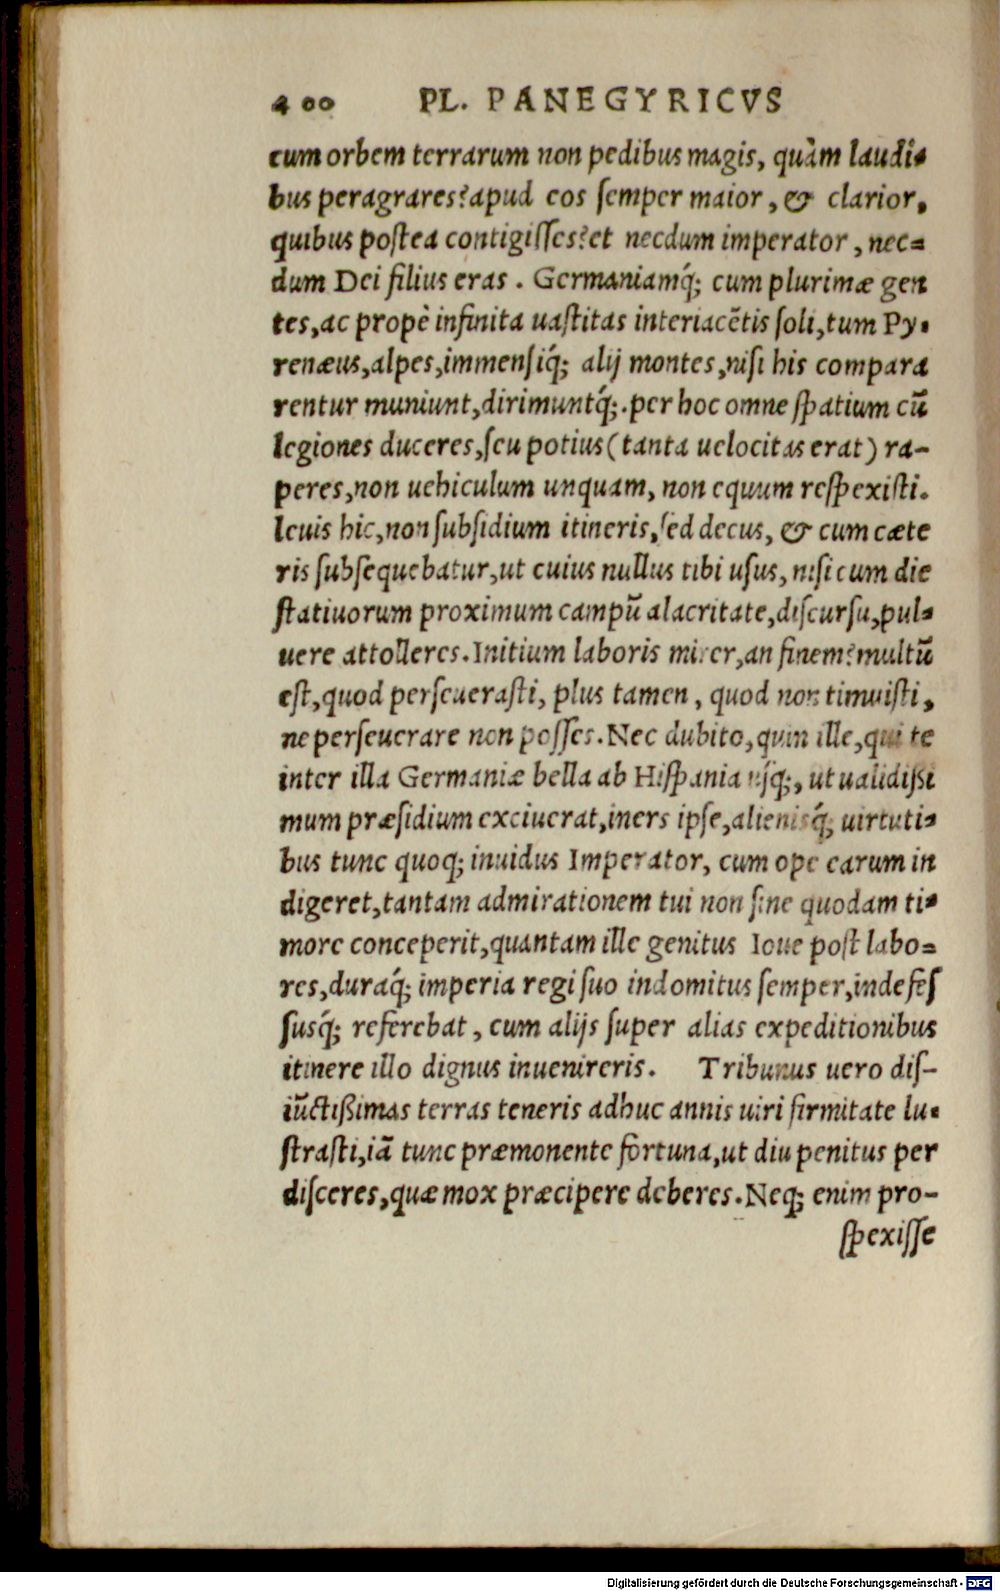 400 PL. PANEGYRICVS
cum orbem terrarum non pedibus magis, quàm laudi-
bus peragrares? apud eos ſemper maior, & clarior,
quibus poſtea contigiſſes? et necdum imperator, nec=
dum Dei filius eras. Germaniamq́; cum plurimæ gen
tes, ac propè infinita uaſtitas interiacẽtis ſoli, tum Py-
renæus, alpes, immenſiq́; alij montes, niſi his compara
rentur muniunt, dirimuntq́;. per hoc omne ſpatium cũ
legiones duceres, ſeu potius (tanta uelocitas erat) ra-
peres, non uehiculum unquam, non equum reſpexiſti.
leuis hic, non ſubſidium itineris, ſed decus, & cum cæte
ris ſubſequebatur, ut cuius nullus tibi uſus, niſi cum die
ſtatiuorum proximum campũ alacritate, diſcurſu, pul-
uere attolleres. Initium laboris mirer, an finem? multũ
eſt, quod perſeueraſti, plus tamen, quod non timuiſti,
ne perſeuerare non poſſes. Nec dubito, quin ille, qui te
inter illa Germaniæ bella ab Hiſpania uſq;, ut ualidißi
mum præſidium exciuerat, iners ipſe, alienisq́; uirtuti-
bus tunc quoq; inuidus Imperator, cum ope earum in
digeret, tantam admirationem tui non ſine quodam ti-
more conceperit, quantam ille genitus Ioue poſt labo=
res, duraq́; imperia regi ſuo indomitus ſemper, indefeſ
ſusq́; referebat, cum alijs ſuper alias expeditionibus
itinere illo dignus inuenireris. Tribunus uero diſ-
iũctißimas terras teneris adhuc annis uiri firmitate lu-
ſtraſti, iã tunc præmonente fortuna, ut diu penitus per
diſceres, quæ mox præcipere deberes. Neq; enim pro-
ſpexiſſe
Digitalisierung gefördert durch die Deutsche Forschungsgemeinschaft - DFG